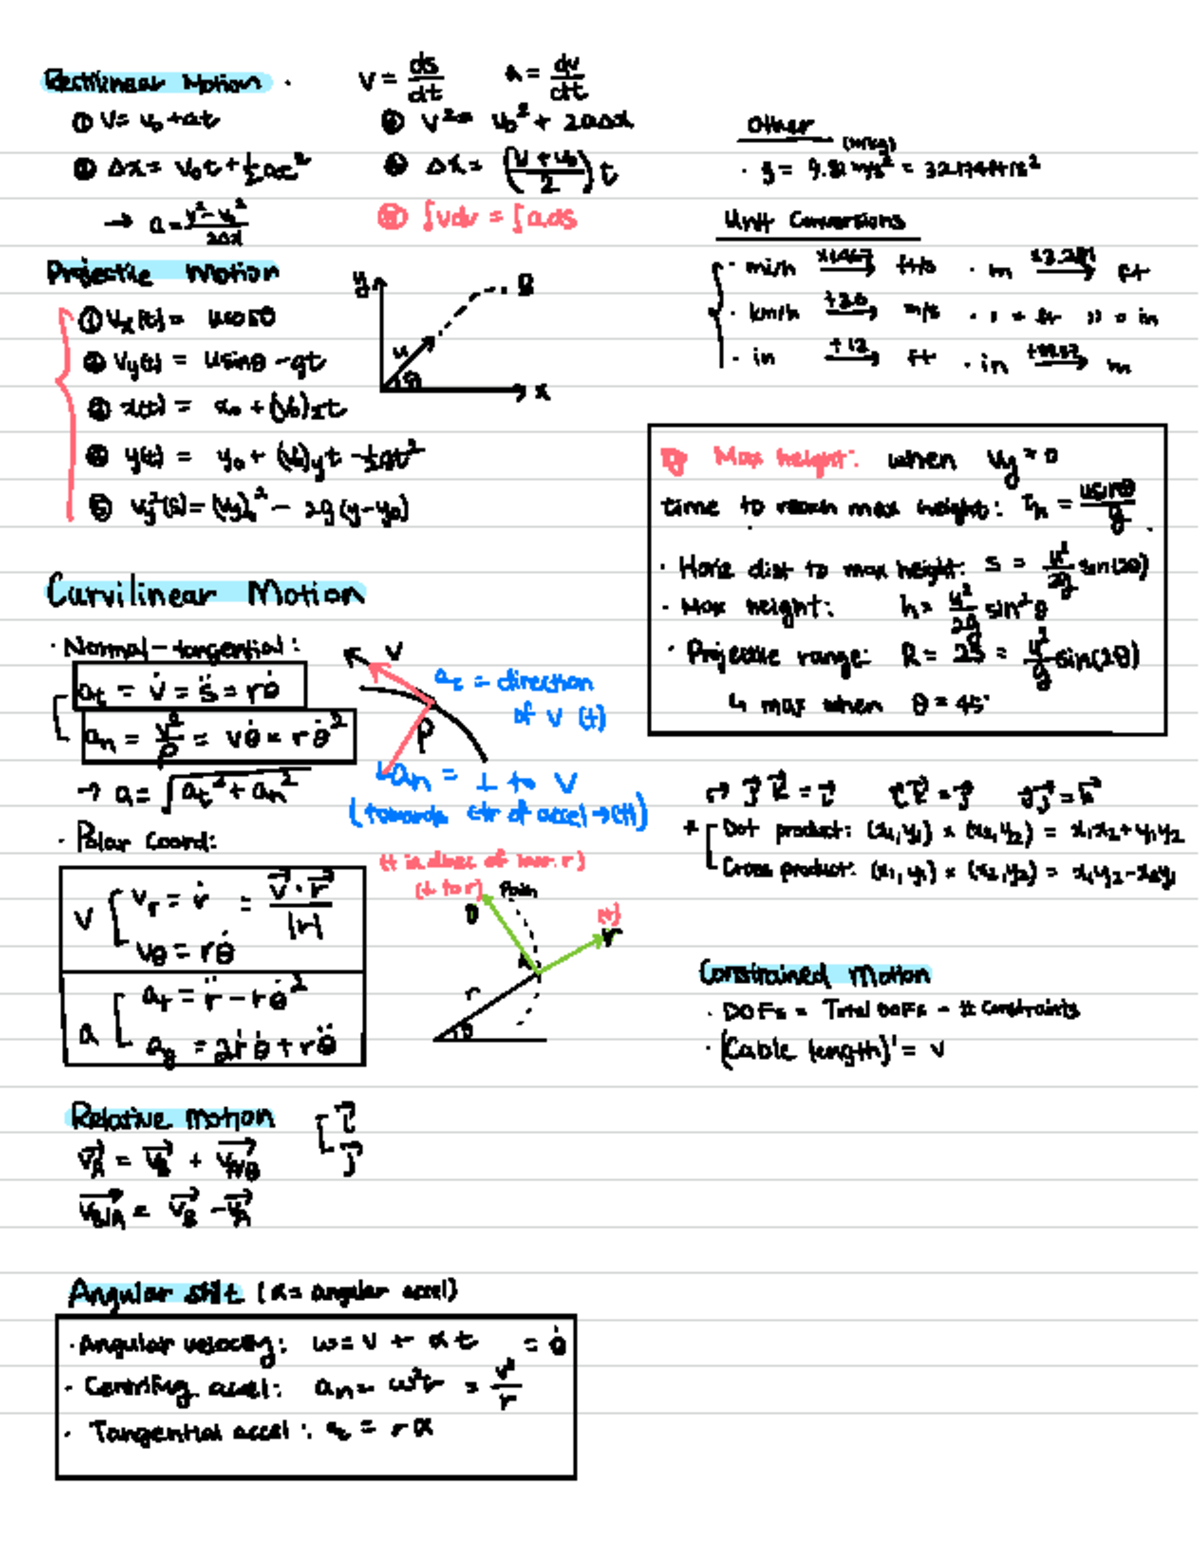 Rectilinear Motion.
V = ds/dt   a = dv/dt
① V = v₀ + at
③ V² = v₀² + 2aΔx
② Δx = V₀t + ½at²
④ Δx = ((V + V₀)/2) t
→ a = (v² - v₀²)/2Δx
∫vdv = ∫ads
Other
(N/kg)
· g = 9.81 m/s² = 32.174 ft/s²
Unit Conversions
· mi/h ×1.467→ ft/s   · m ×3.281→ ft
· km/h ÷3.6→ m/s
· in ÷12→ ft   · in → m
Projectile Motion
① Vx(t) = ucosθ
② Vy(t) = usinθ - gt
③ x(t) = x₀ + (V₀)xt
④ y(t) = y₀ + (V₀)yt - ½gt²
⑤ Vy²(s) = (Vy)₀² - 2g(y-y₀)
y
u
θ
x
Max height: when Vy = 0
time to reach max height: Th = usinθ/g
· Horiz dist to max height: S = u²/2g sin(2θ)
· Max height: h = u²/2g sin²θ
· Projectile range: R = 2S = u²/g sin(2θ)
↳ max when θ = 45°
Curvilinear Motion
· Normal-tangential:
at = v̇ = s̈ = rθ̈
an = v²/ρ = vθ̇ = rθ̇²
→ a = √(at² + an²)
V
at = direction
of V (t)
ρ
an = ⊥ to V
(towards ctr of accel → (n))
· Polar Coord:
V [ Vr = ṙ = v⃗ · r⃗ / |r|
Vθ = rθ̇
a [ ar = r̈ - rθ̇²
aθ = 2ṙθ̇ + rθ̈
(⊥ to r)
Path
θ
r
r
θ
* [ Dot product: (x₁,y₁) × (x₂,y₂) = x₁x₂ + y₁y₂
Cross product: (x₁,y₁) × (x₂,y₂) = x₁y₂ - x₂y₁
Constrained Motion
· DOFs = Total DOFs - # Constraints
· (Cable length)' = V
Relative Motion [ i⃗
j⃗
V⃗A = V⃗B + V⃗A/B
V⃗B/A = V⃗B - V⃗A
Angular shit (α = angular accel)
· Angular velocity: ω = v + αt = θ̇
· Centrifug accel: an = ω²r = v²/r
· Tangential accel: at = rα